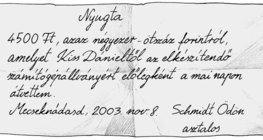 Nyugta
4500 Ft, azaz négyezer-ötszáz forintról,
amelyet Kiss Dánieltől az elkészítendő
számítógépállványért előlegként a mai napon
átvettem.
Mecseknádasd, 2003. nov. 8. Schmidt Ödön
asztalos